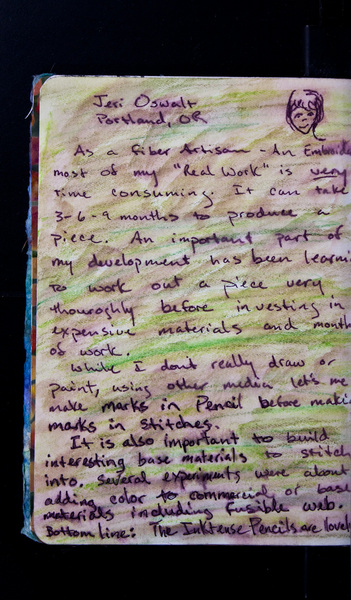 Jeri Oswalt
Portland, OR
As a Fiber Artisan - An Embroide
most of my "Real Work" is very
time consuming. It can take
3-6-9 months to produce a
piece. An important part of
my development has been learni
to work out a piece very
thouroghly before investing in
expensive materials and month
of work.
While I don't really draw or
paint, using other media let's me
make marks in Pencil before makin
marks in stitches.
It is also important to build
interesting base materials to stitch
into. Several experiments were about
adding color to commercial or base
materials including fusible web.
Bottom line: The Inktense Pencils are lovel